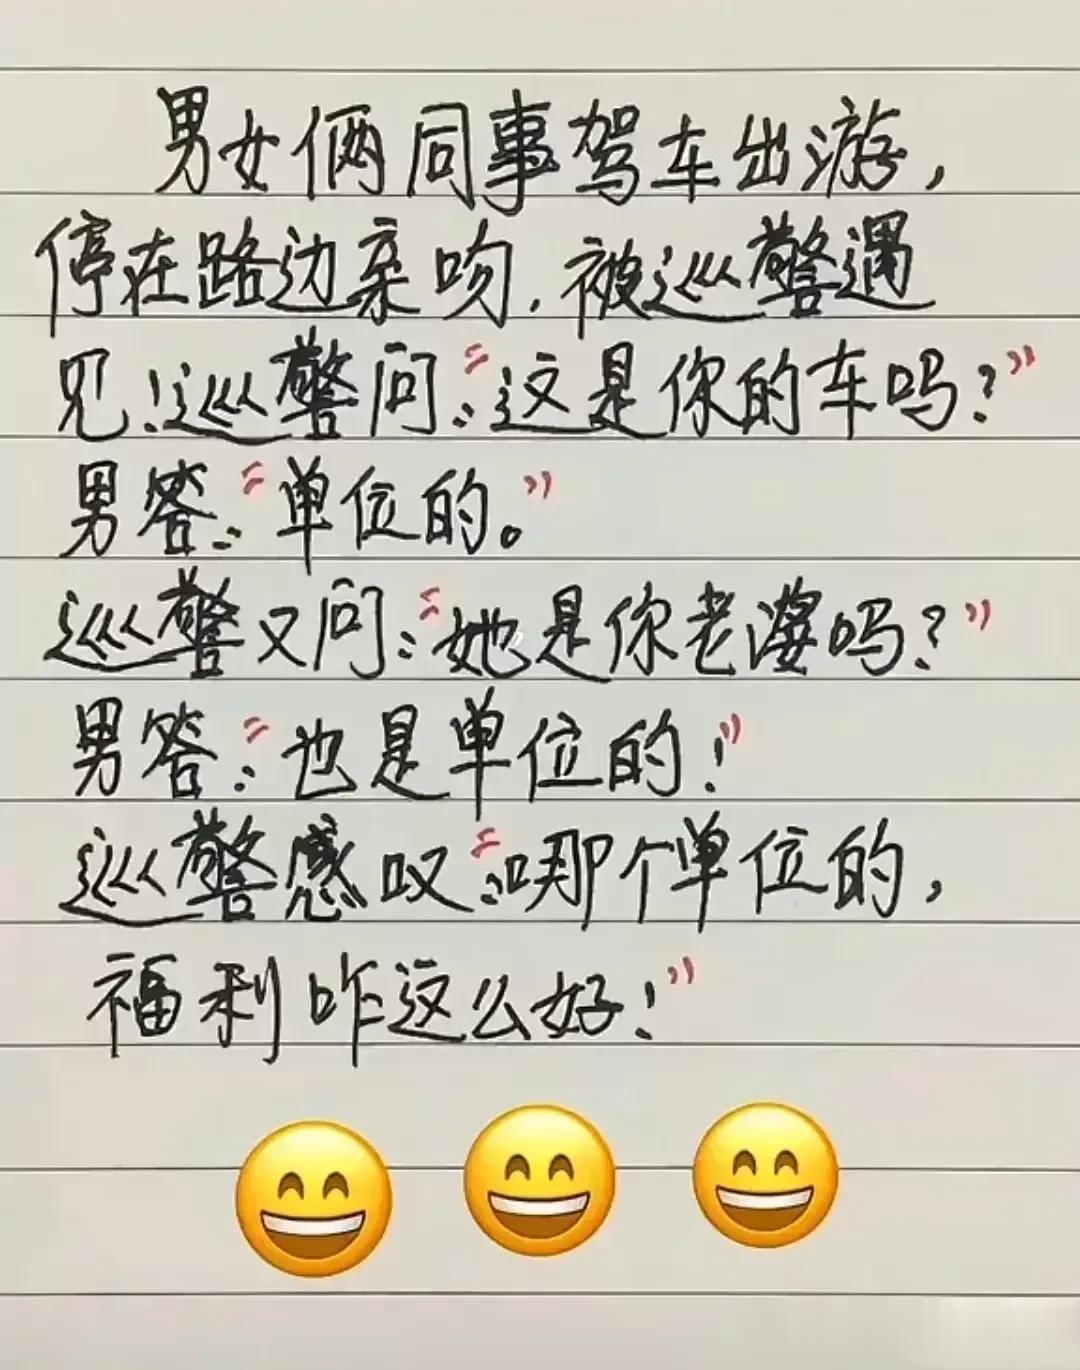 男女俩同事驾车出游,
停在路边亲吻,被巡警遇
见!巡警问:"这是你的车吗?"
男答:"单位的。"
巡警又问:"她是你老婆吗?"
男答:"也是单位的!"
巡警感叹:"哪个单位的,
福利咋这么好!"